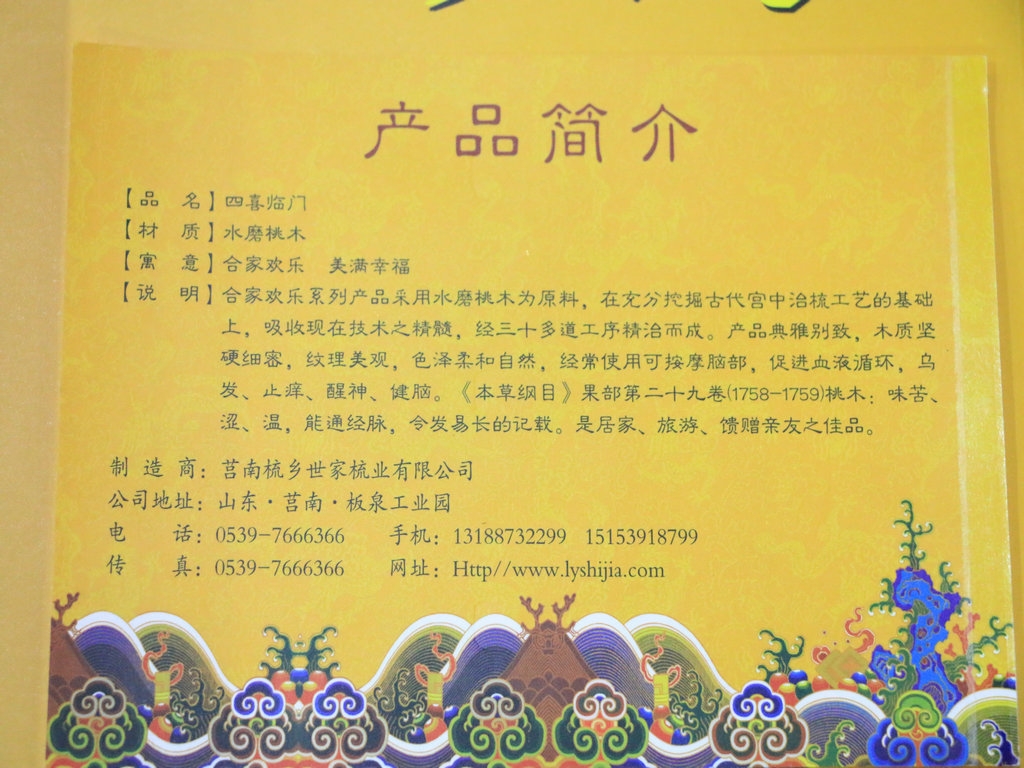 产品简介
【品 名】四喜临门
【材 质】水磨桃木
【寓 意】合家欢乐 美满幸福
【说 明】合家欢乐系列产品采用水磨桃木为原料，在充分挖掘古代宫中治梳工艺的基础
上，吸收现在技术之精髓，经三十多道工序精治而成。产品典雅别致，木质坚
硬细密，纹理美观，色泽柔和自然，经常使用可按摩脑部，促进血液循环，乌
发、止痒、醒神、健脑。《本草纲目》果部第二十九卷(1758-1759)桃木：味苦、
涩、温，能通经脉，令发易长的记载。是居家、旅游、馈赠亲友之佳品。
制 造 商：莒南梳乡世家梳业有限公司
公司地址：山东·莒南·板泉工业园
电 话：0539-7666366 手机：13188732299 15153918799
传 真：0539-7666366 网址：Http//www.lyshijia.com